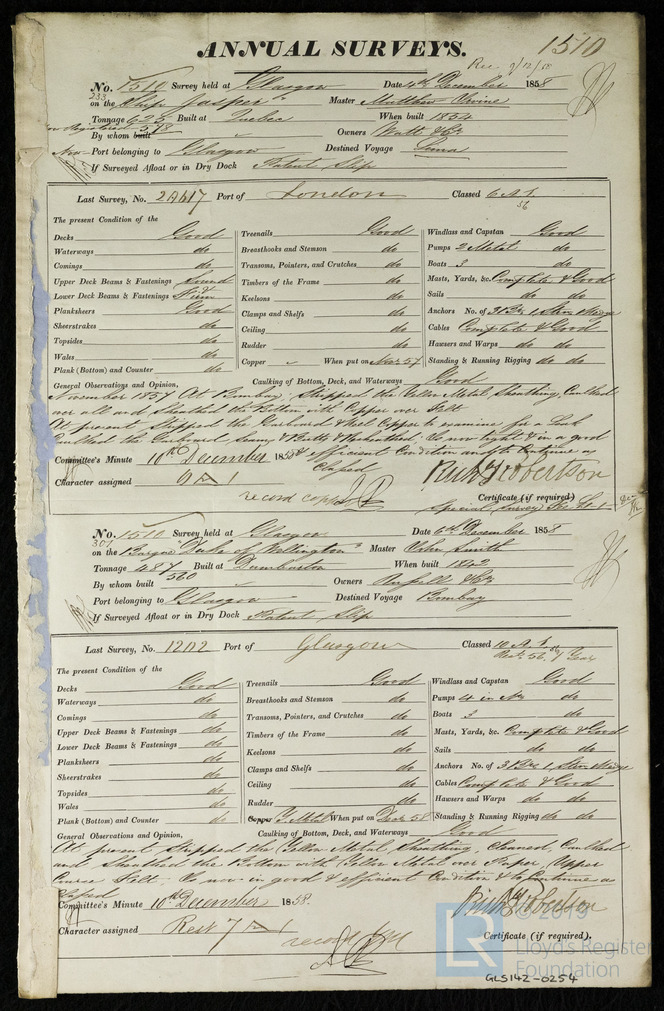 ANNUAL SURVEYS. 1510
Rec 9/12/58
No. 1510 Survey held at Glasgow Date 4th December 1858
233
on the Ship "Jasper" Master Matthew Irvine
Tonnage 625 Built at Quebec When built 1854
New Registered 578
By whom built Owners Watt & Co
Now Port belonging to Glasgow Destined Voyage Lima
If Surveyed Afloat or in Dry Dock Patent Slip
Last Survey, No. Port of London Classed 6 A 1.
56
The present Condition of the
Decks Good
Waterways do
Comings do
Upper Deck Beams & Fastenings Sound
Lower Deck Beams & Fastenings & Firm
Planksheers Good
Sheerstrakes do
Topsides do
Wales do
Plank (Bottom) and Counter do
Treenails Good
Breasthooks and Stemson do
Transoms, Pointers, and Crutches do
Timbers of the Frame do
Keelsons do
Clamps and Shelfs do
Ceiling do
Rudder do
Copper When put on Nov 57
Windlass and Capstan Good
Pumps 2 Metal do
Boats 3 do
Masts, Yards, &c. Complete & Good
Sails do do
Anchors No. of 3 Brs 1 Strm
Cables Complete & Good
Hawsers and Warps do do
Standing & Running Rigging do do
General Observations and Opinion, Caulking of Bottom, Deck, and Waterways Good
November 1857 At Bombay, Stripped the Yellow Metal Sheathing, Caulked
over all and Sheathed the Bottom with Copper over Felt
At present Stripped the Garboard & Keel Copper to examine for a Leak
Caulked the Garboard Seams & Butts. Is now tight & in a good
& efficient Condition and to Continue as
Classed
Committee's Minute 10th December 1858
Richd Robertson
Character assigned 6 A 1
record copper
Certificate (if required)
Special Survey
No. 1510 Survey held at Glasgow Date 6th December 1858
301
on the Barque "Duke of Wellington" Master John Smith
Tonnage 487 Built at Dumbarton When built 1842
560
By whom built Owners & Co
Port belonging to Glasgow Destined Voyage Bombay
If Surveyed Afloat or in Dry Dock Patent Slip
Last Survey, No. Port of Glasgow Classed 10 A 1.
Rest. 56, 7 Years
The present Condition of the
Decks Good
Waterways do
Comings do
Upper Deck Beams & Fastenings do
Lower Deck Beams & Fastenings do
Planksheers do
Sheerstrakes do
Topsides do
Wales do
Plank (Bottom) and Counter do
Treenails Good
Breasthooks and Stemson do
Transoms, Pointers, and Crutches do
Timbers of the Frame do
Keelsons do
Clamps and Shelfs do
Ceiling do
Rudder do
Copper Y. Metal When put on Decr 58
Windlass and Capstan Good
Pumps 4 in No do
Boats 3 do
Masts, Yards, &c. Complete & Good
Sails do do
Anchors No. of 3 Brs 1 Strm
Cables Complete & Good
Hawsers and Warps do do
Standing & Running Rigging do do
General Observations and Opinion, Caulking of Bottom, Deck, and Waterways Good
At present Stripped the Yellow Metal Sheathing, Cleaned, Caulked
and Sheathed the Bottom with Yellow Metal over Paper, Upper
Course Felt. Is now in good & efficient Condition & to Continue as
Classed
Committee's Minute 10th December 1858.
Richd Robertson
Character assigned Rest 7 A 1
record
Certificate (if required).
LR
© 2019
Lloyd's Register
Foundation
GLS142-0254